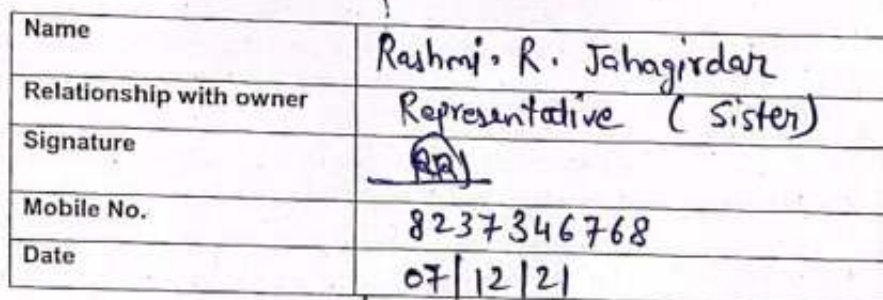 Name Rashmi. R. Jahagirdar
Relationship with owner Representative ( Sister)
Signature
Mobile No. 8237346768
Date 07/12/21